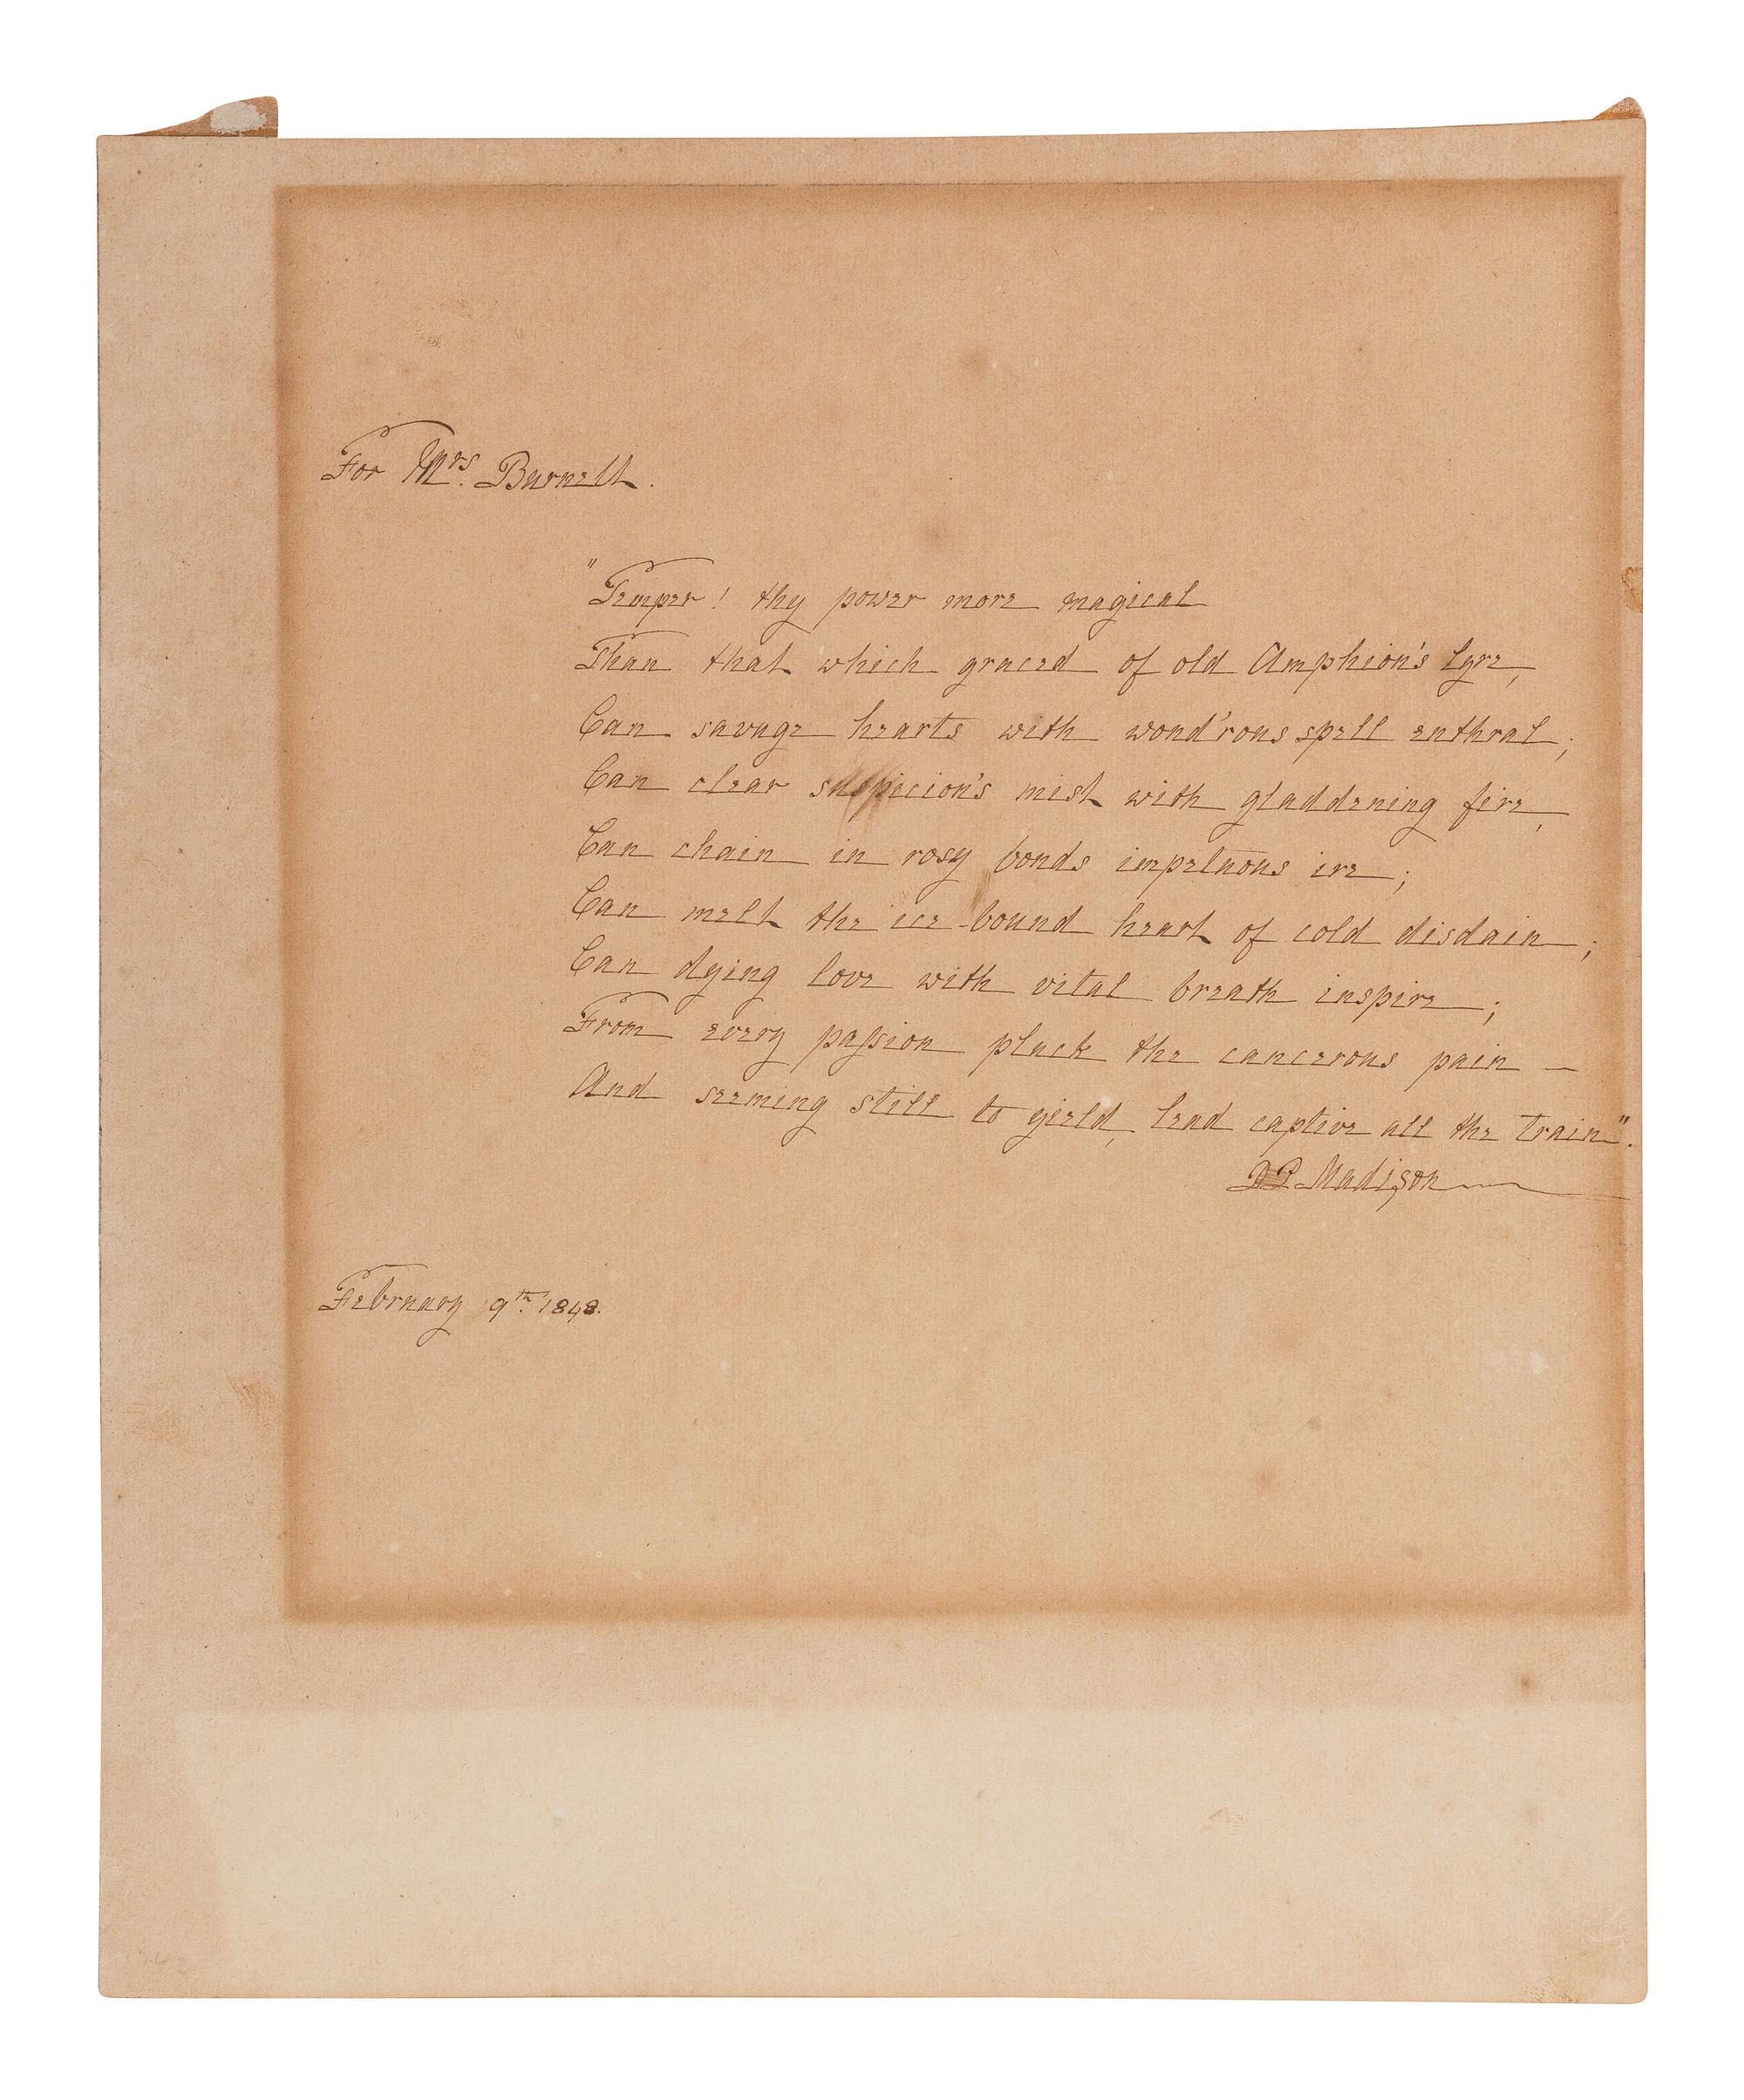 For Mrs. Burnett.
"Temper! thy power more magical
Than that which graced of old Amphion's lyre,
Can savage hearts with wond'rous spell enthral;
Can clear suspicion's mist with gladdening fire,
Can chain in rosy bonds impetuous ire;
Can melt the ice-bound heart of cold disdain;
Can dying love with vital breath inspire;
From every paſsion pluck the cancerous pain —
And seeming still to yield, lead captive all the train".
D P Madison
February 9th. 1848.